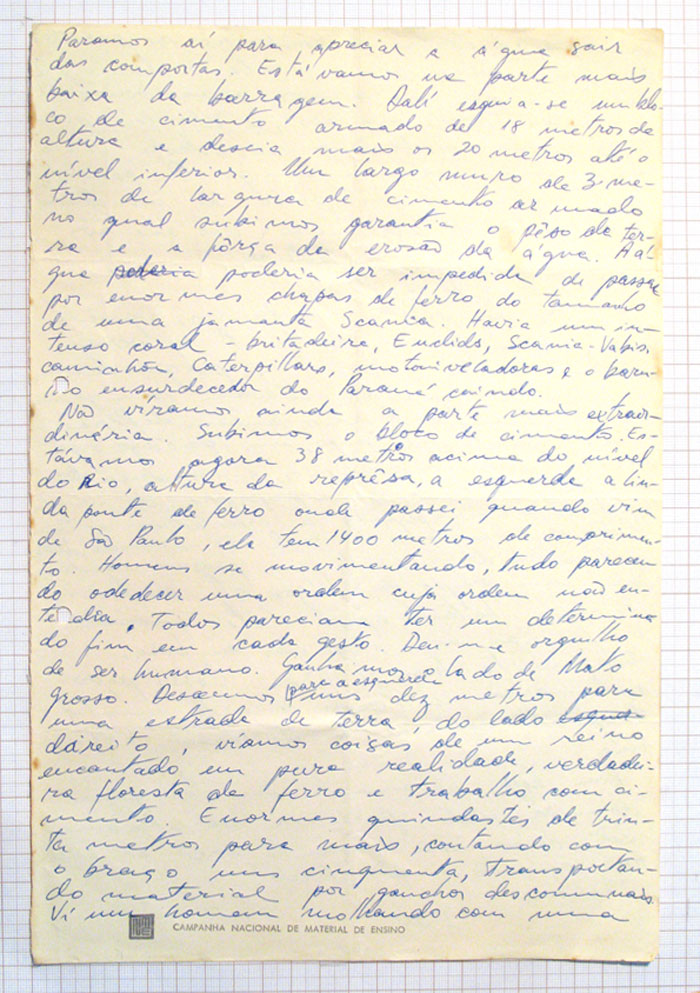 Paramos aí para apreciar a água sair
das comportas. Estávamos na parte mais
baixa da barragem. Dalí esguia-se um blo-
co de cimento armado de 18 metros de
altura e descia mais os 20 metros até o
nível inferior. Um largo muro de 3 me-
tros de largura de cimento armado
no qual subimos garantia o pêso da ter-
ra e a fôrça da erosão da água. A á-
gua poderia poderia ser impedida de passar
por enormes chapas de ferro do tamanho
de uma jamanta Scania. Havia um in-
tenso coral - britadeira, Euclids, Scania-Vabis,
caminhões, Caterpillars, motoniveladoras e o baru-
lho ensurdecedor do Paraná caindo.
Não víramos ainda a parte mais extraor-
dinária. Subimos o bloco de cimento. Es-
távamos agora 38 metros acima do nível
do Rio, altura da reprêsa, a esquerda a lin-
da ponte de ferro onde passei quando vim
de São Paulo, ela tem 1400 metros de comprimen-
to. Homens se movimentando, tudo parecen
do odedecer uma ordem cuja ordem não en-
tendia. Todos pareciam ter um determina
do fim em cada gesto. Deu-me orgulho
de ser humano. Ganhamos o lado de Mato
grosso. Descemos para a esquerda uns dez metros para
uma estrada de terra, do lado esquer
direito, víamos coisas de um reino
encantado em pura realidade, verdadei-
ra floresta de ferro e trabalho com ci-
mento. Enormes guindastes de trin-
ta metros para mais, contando com
o braço uns cinquenta, transportan-
do material por ganchos descomunais.
Ví um homem molhando com uma
CAMPANHA NACIONAL DE MATERIAL DE ENSINO